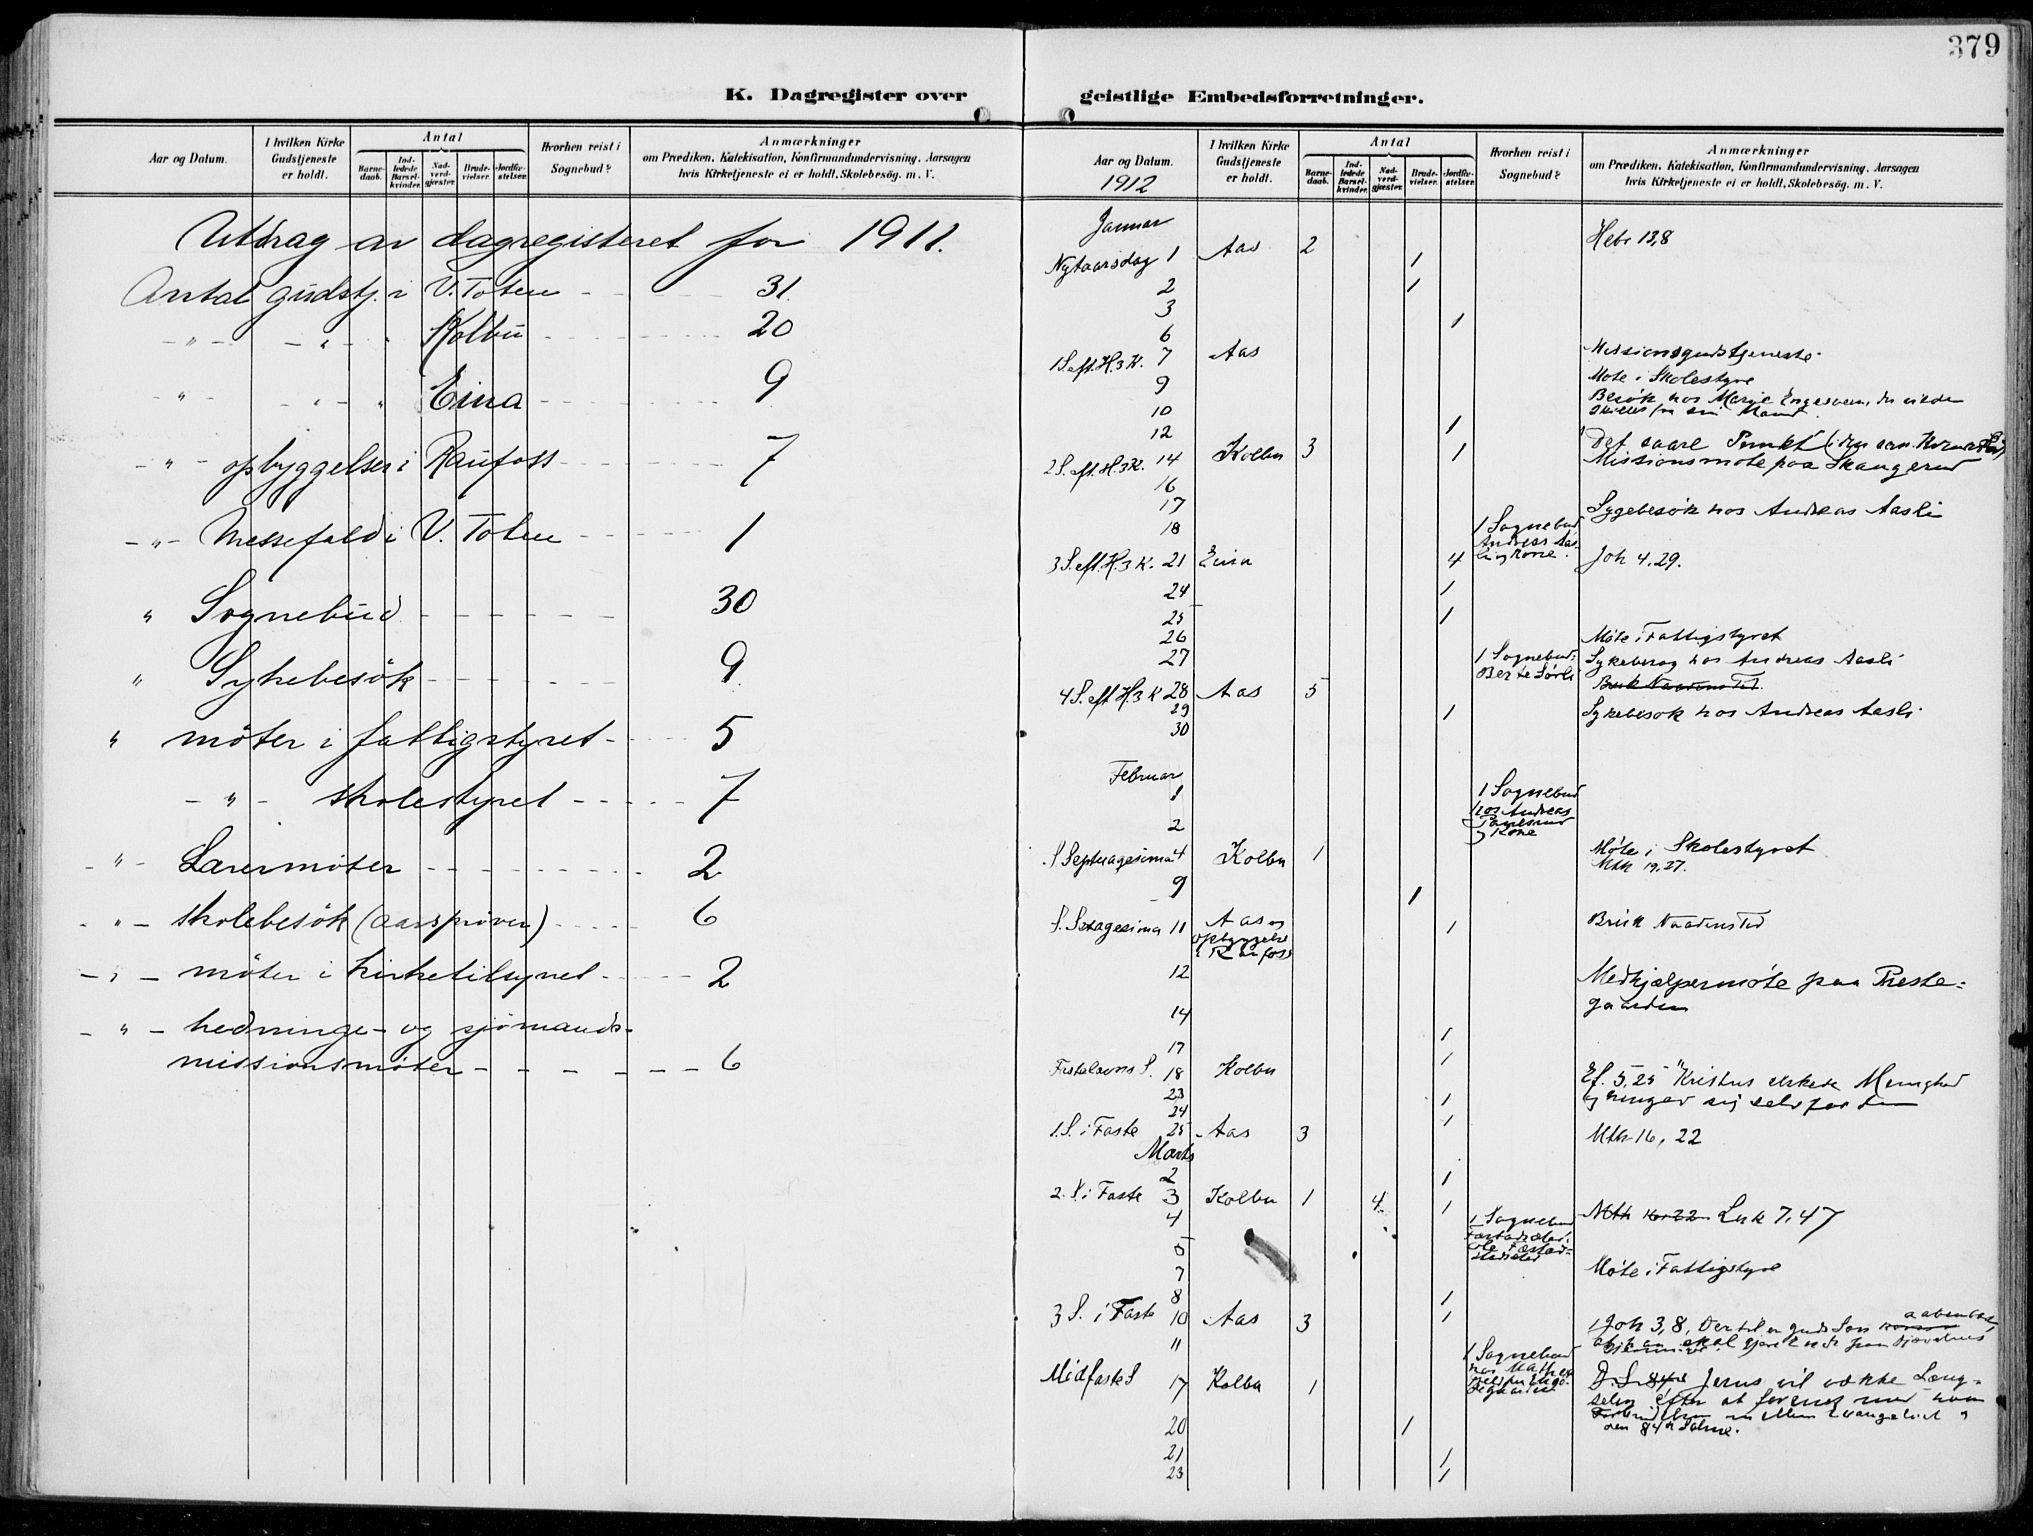 379
K. Dagregister over geistlige Embedsforretninger.
Aar og Datum.
I hvilken Kirke Gudstjeneste er holdt.
Antal
Barne-daab.
Ind-ledede Barsel-kvinder.
Nad-verd-gjæster.
Brude-vielser.
Jordfæ-stelser.
Hvorhen reist i Sognebud?
Anmærkninger
om Prædiken, Katekisation, Konfirmandundervisning, Aarsagen
hvis Kirketjeneste ei er holdt, Skolebesög. m. V.
Utdrag av dagregisteret for 1911.
Antal gudstj. i V. Toten - - - 31.
- " - - " - " Kolbu - - - 20
- " - - " - " Eina - - - 9
- " - opbyggelser i Raufoss - - - 7
- " - Messefald i V. Toten - - - 1
" Sognebud - - - 30
" Sykebesök - - - 9
" möter i fattigstyret - - - 5
- " - skolestyret - - - 7
- " - Lærermöter - - - 2
- " - skolebesök (aarsprøver) - - - 6
- " - möter i kirketilsynet - - - 2
- " - hedninge- og sjömands-
missionsmöter - - - 6
Aar og Datum.
1912
I hvilken Kirke Gudstjeneste er holdt.
Antal
Barne-daab.
Ind-ledede Barsel-kvinder.
Nad-verd-gjæster.
Brude-vielser.
Jordfæ-stelser.
Hvorhen reist i Sognebud?
Anmærkninger
om Prædiken, Katekisation, Konfirmandundervisning, Aarsagen
hvis Kirketjeneste ei er holdt, Skolebesög. m. V.
Januar
Nytaarsdag 1 Aas 2 1 Hebr 13,8
2 1
3
6 1
1 S. eft. H. 3 K. 7 Aas Missionsgudstjeneste
9 Møte i Skolestyre
10 Besök hos Marie Engesveen, der vilde
skilles fra sin Mand
12 1
2 S. eft. H. 3 K. 14 Kolbu 3 1 "Det saare Punkt"
Missionsmøte paa Skangerud
16
17 Sygebesök hos Andreas Aasli
18 1 Sognebud Andreas Aasli og Kone.
3 S. eft. H. 3 K. 21 Eina 4 Joh 4.29.
24 1
25 1
26 Møte i Fattigstyret
27 1 Sognebud: Berte Sørli Sykebesøg hos Andreas Aasli
4 S. eft H. 3 K 28 Aas 5 Bruk Naadens Tid.
29 1 Sykebesøk hos Andreas Aasli
30
Februar
1 1 Sognebud hos Andreas og Kone
2
S. Septuagesima 4 Kolbu 1 Møte i Skolestyret
Mth 19.27.
9 1
S. Sexagesima 11 Aas og opbyggelse i Raufoss 1 Bruk Naadens Tid
12 Medhjælpermøte paa Preste-
gaarden
14 1
17 1
Fastelavns S. 18 Kolbu Ef. 5,25 "Kristus elskede Menighed
og hengav sig selv for den
23 1
24 1
1. S. i Faste 25 Aas 3 Mth 16, 22
Marts
2 1
2. S. i Faste 3 Kolbu 1 4 1 Mth 16. 22 Luk 7,47
4 1 Sognebud
5
7 Møte i Fattigstyre
8 1
3 S. i Faste 10 Aas 3 1 1 Joh 3,8, Dertil er Guds Søn aabenbaret
11 1 Sognebud hos
Midfaste S 17 Kolbu 1 D. S. 84de Jesus vil vække Læng-
selen efter at forenes med ham
Forbindelsen mellem Evangeliet og
den 84de Salme.
20 1
21 1
23 1